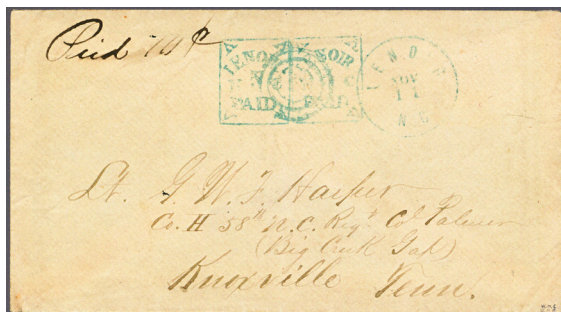 Paid 10 ¢
LENOIR
N C
PAID
LENOIR
N C
PAID
LENOIR
NOV
11
N.C.
Lt. G. W. F. Harper
Co. H 58th N.C. Regt Col Palmer
(Big Creek Gap)
Knoxville Tenn.